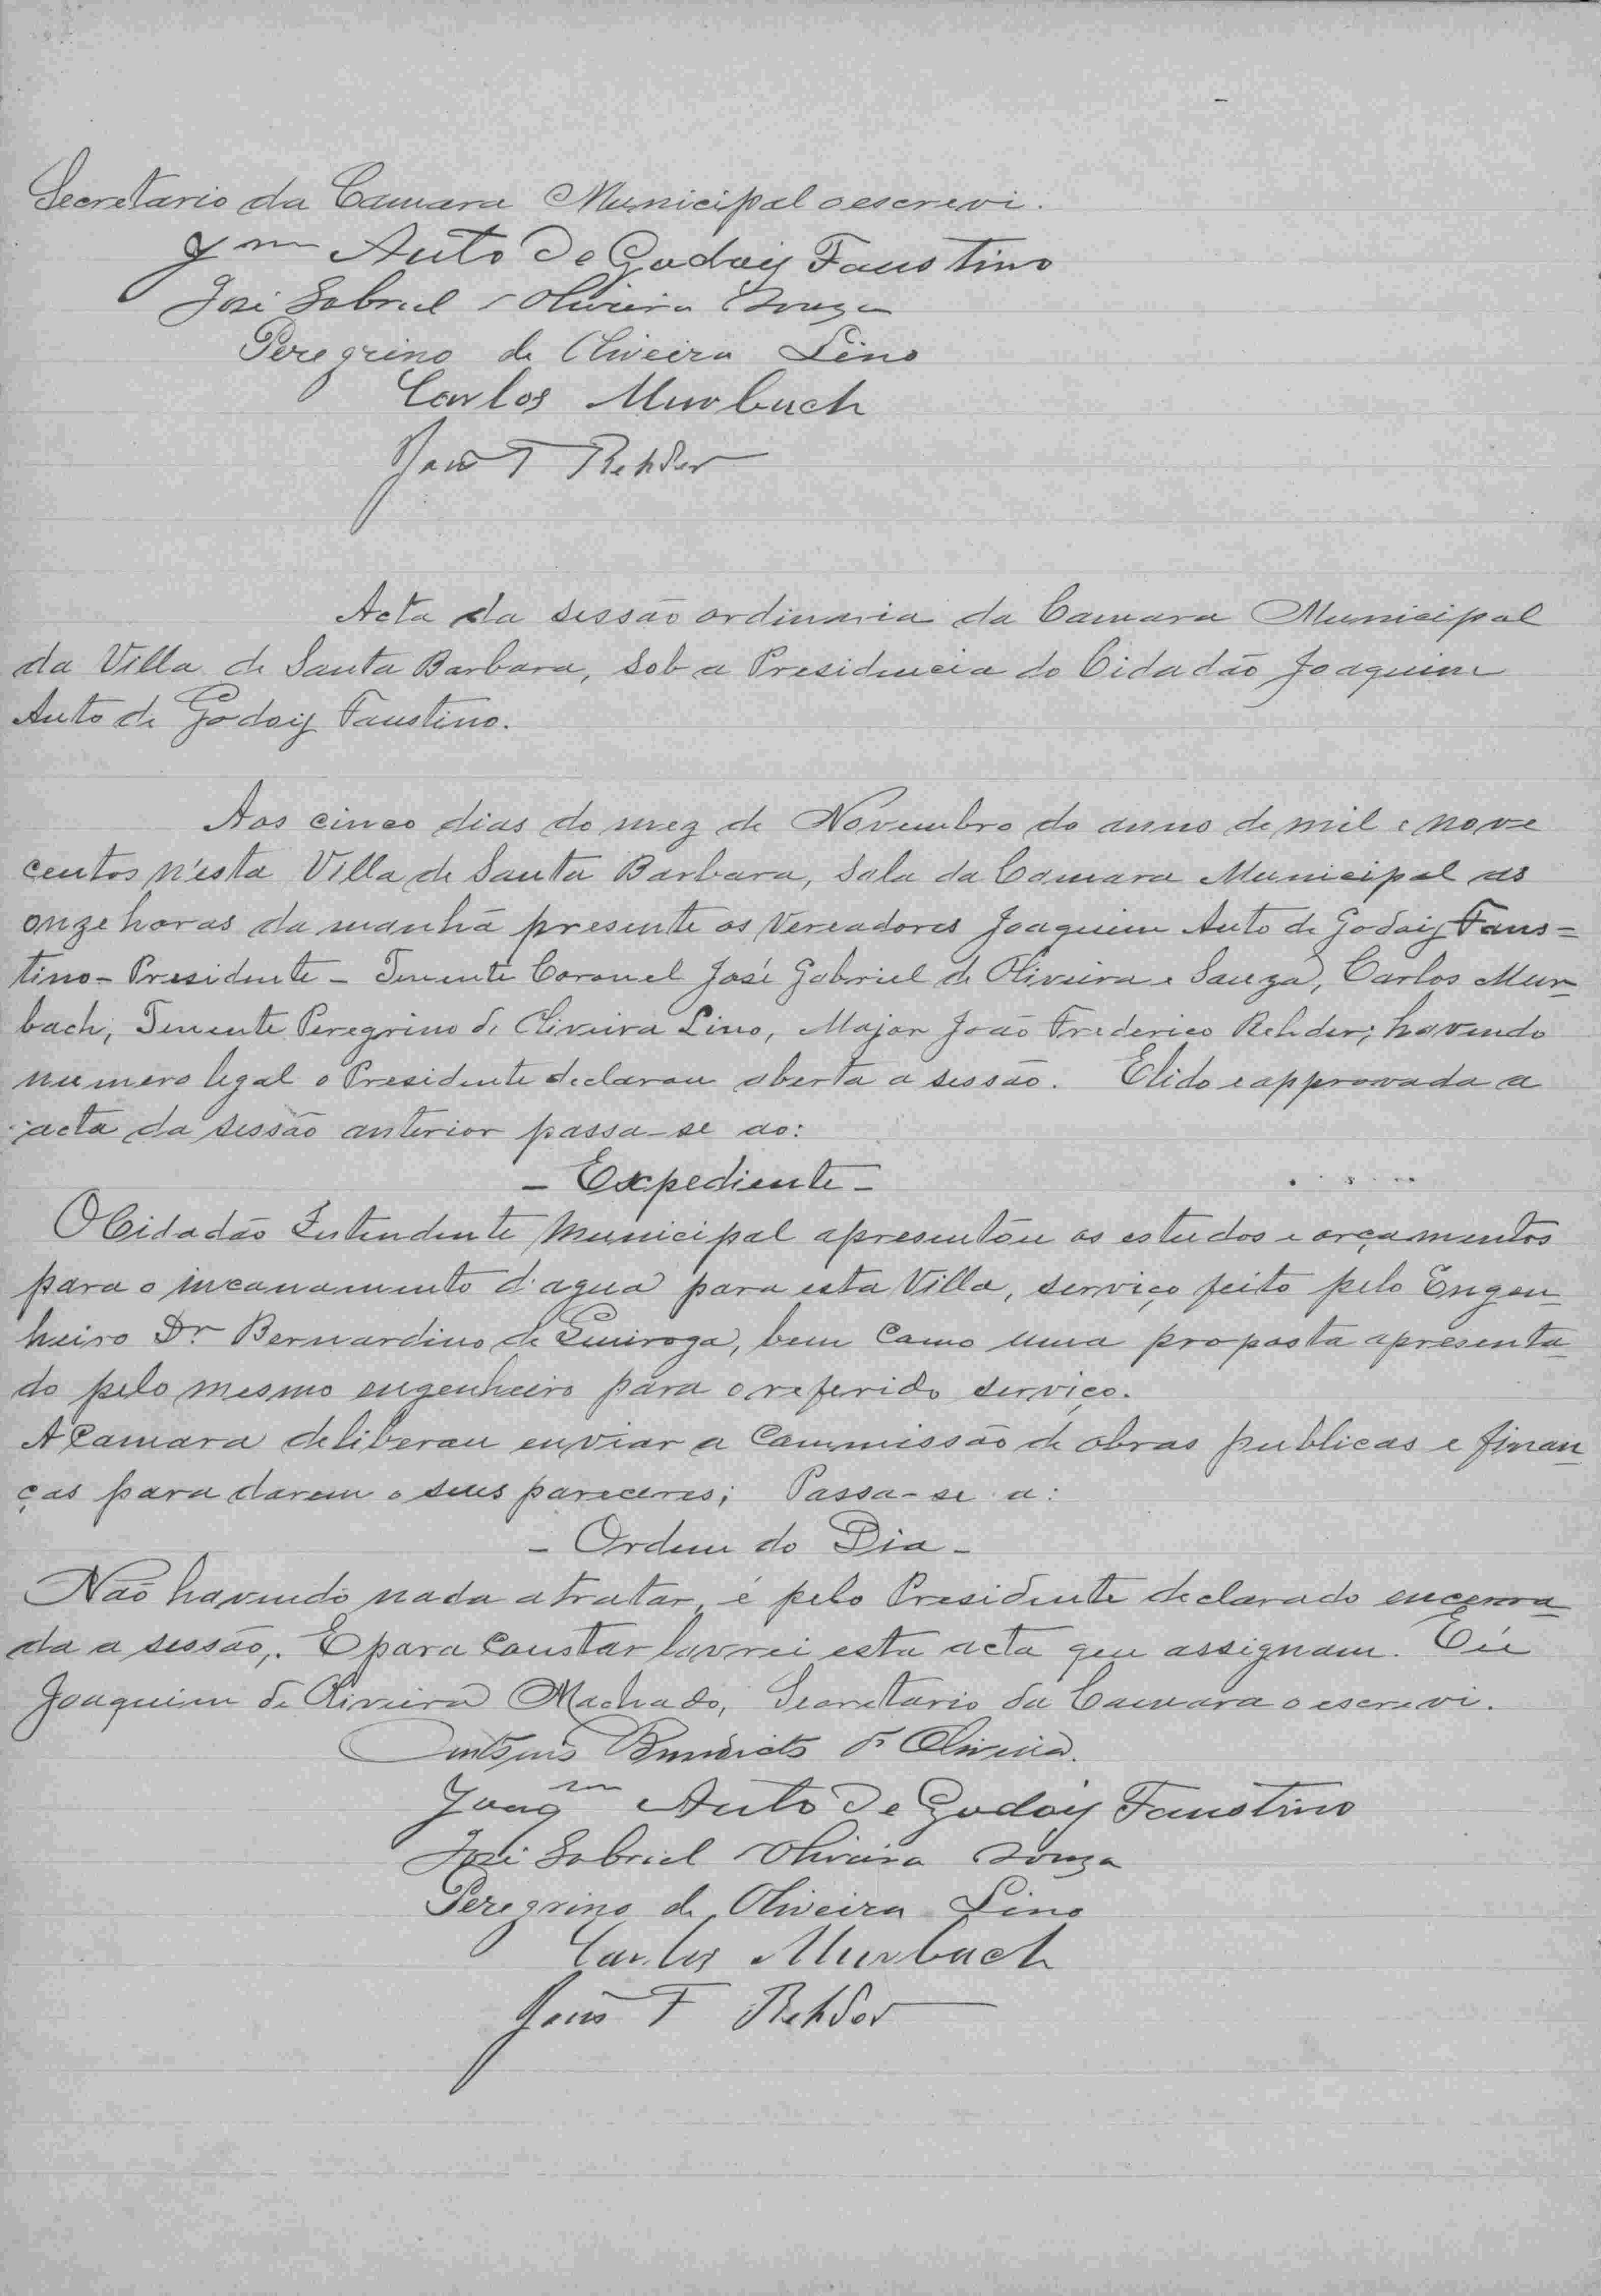 Secretario da Camara Municipal o escrevi.
Jm Auto de Godoy Faustino
José Gabriel Oliveira Souza
Peregrino de Oliveira Lino
Carlos Murbach
João F Rehder
Acta da sessão ordinaria da Camara Municipal
da Villa de Santa Barbara, sob a Presidencia do Cidadão Joaquim
Auto de Godoy Faustino.
Aos cinco dias do mez de Novembro do anno de mil e nove
centos n'esta Villa de Santa Barbara, Sala da Camara Municipal as
onze horas da manhã presente os Vereadores Joaquim Auto de Godoy Faus=
tino - Presidente - Tenente Coronel José Gabriel de Oliveira e Souza, Carlos Mur-
bach, Tenente Peregrino de Oliveira Lino, Major João Frederico Rehder; havendo
numero legal o Presidente declarou aberta a sessão. E lido e approvada a
acta da sessão anterior passa-se ao:
- Expediente -
O Cidadão Intendente Municipal apresentou os estudos e orçamentos
para o incanamento d'agua para esta Villa, serviço feito pelo Engen-
heiro Dr. Bernardino de Quiroga, bem como uma proposta apresenta-
do pelo mesmo engenheiro para o referido serviço.
A Camara deliberou enviar a Commissão de obras publicas e finan-
ças para darem o seus pareceres; Passa-se a:
- Ordem do Dia -
Não havendo nada a tratar, é pelo Presidente declarado encerra-
da a sessão,. E para constar lavrei esta acta que assignam. Eu
Joaquim de Oliveira Machado, Secretario da Camara o escrevi.
Antonio Benedicto de Oliveira.
Joaqm Auto de Godoy Faustino
José Gabriel Oliveira Souza
Peregrino de Oliveira Lino
Carlos Murbach
João F Rehder